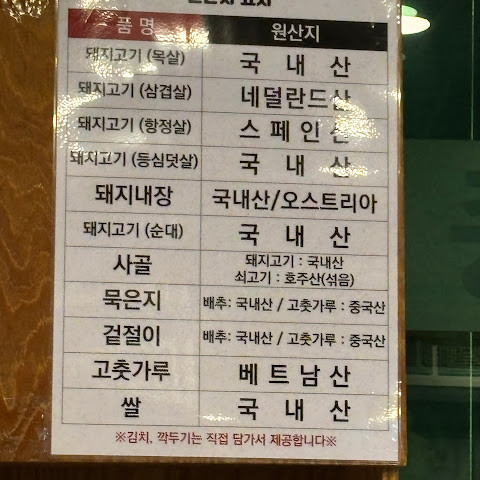 원산지 표시
품 명 원산지
돼지고기 (목살) 국 내 산
돼지고기 (삼겹살) 네덜란드산
돼지고기 (항정살) 스 페 인 산
돼지고기 (등심덧살) 국 내 산
돼지내장 국내산/오스트리아
돼지고기 (순대) 국 내 산
사골 돼지고기 : 국내산
쇠고기 : 호주산(섞음)
묵은지 배추: 국내산 / 고춧가루 : 중국산
겉절이 배추: 국내산 / 고춧가루 : 중국산
고춧가루 베 트 남 산
쌀 국 내 산
※김치, 깍두기는 직접 담가서 제공합니다※